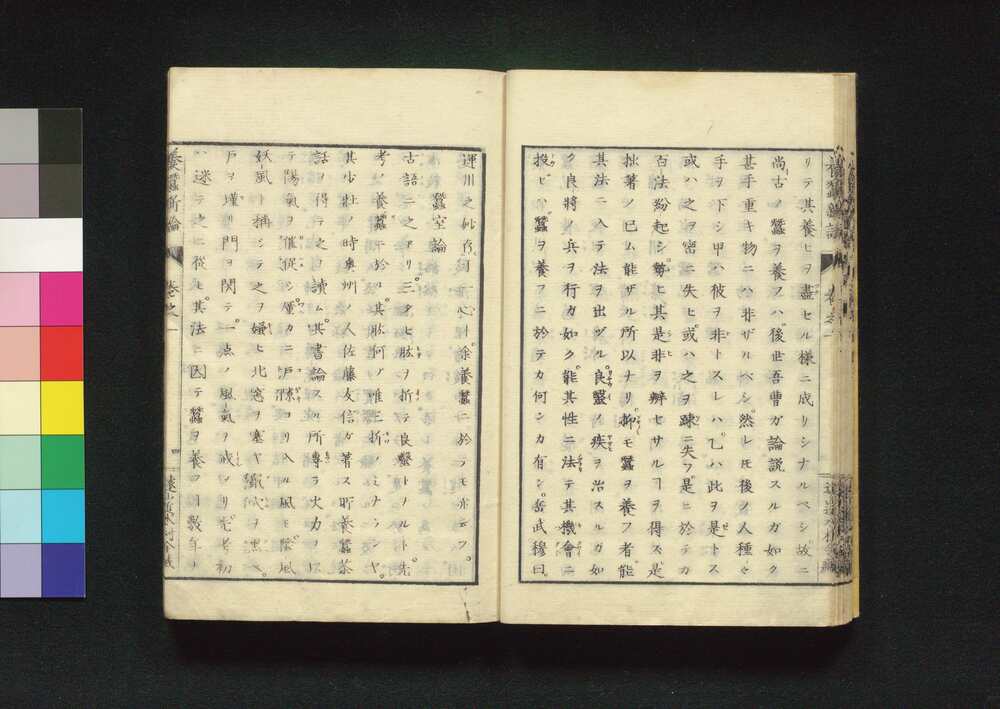 リテ其養ヒヲ盡セル樣ニ成リシナルベシ故ニ
尚古ノ蠶ヲ養フハ後世吾曹ガ論説スルガ如ク
甚手重キ物ニハ非ザルベシ然レㇳモ後ノ人種々
手ヲ下シ甲ハ彼ヲ非トスレハ乙ハ此ヲ是トス
或ハ之ヲ密ニ失ヒ或ハ之ヲ疎ニ失フ是ニ於テカ
百法紛起シ勢ヒ其是非ヲ辨セサルヿヲ得ス是
拙著ノ已ム能ザル所以ナリ抑モ蠶ヲ養フ者能
其法ニ入テ法ヲ出ヅル良醫ノ疾ヲ治スルガ如
ク良將ノ兵ヲ行カ如ク能其性ニ法テ其機會ニ
投ビハ蠶ヲ養フニ於テカ何シカ有ン岳武穆曰
運用之妙存同一心財余養蠶ニ於ラモ亦云フ
蠶室論
古語ニ之アリ三タヒ肱ヲ折テ良醫トナルト先
考ノ養蠶ニ於ル其肱何ノ唯三折ノミナランヤ
其少壯ノ時奥州ノ人佐藤友信ガ著ス所養蠶茶
話ヲ得テ之ヲ讀ム其書論スル所專ラ火力ヲ以
テ陽氣ヲ催促シ僅カニ戸隙ヨリ入ル風モ陰風
妖風ト稱シテ之ヲ嫌ヒ北窓ヲ塞キ鼠穴ヲ熏ヘ
戸ヲ墐リ門ヲ関テ一点ノ風氣ヲ戒シリ先考初
ハ迷テ之ニ從ヒ其法ニ因テ蠶ヲ養フヿ数年ナ
養蠶新論
卷之一
四